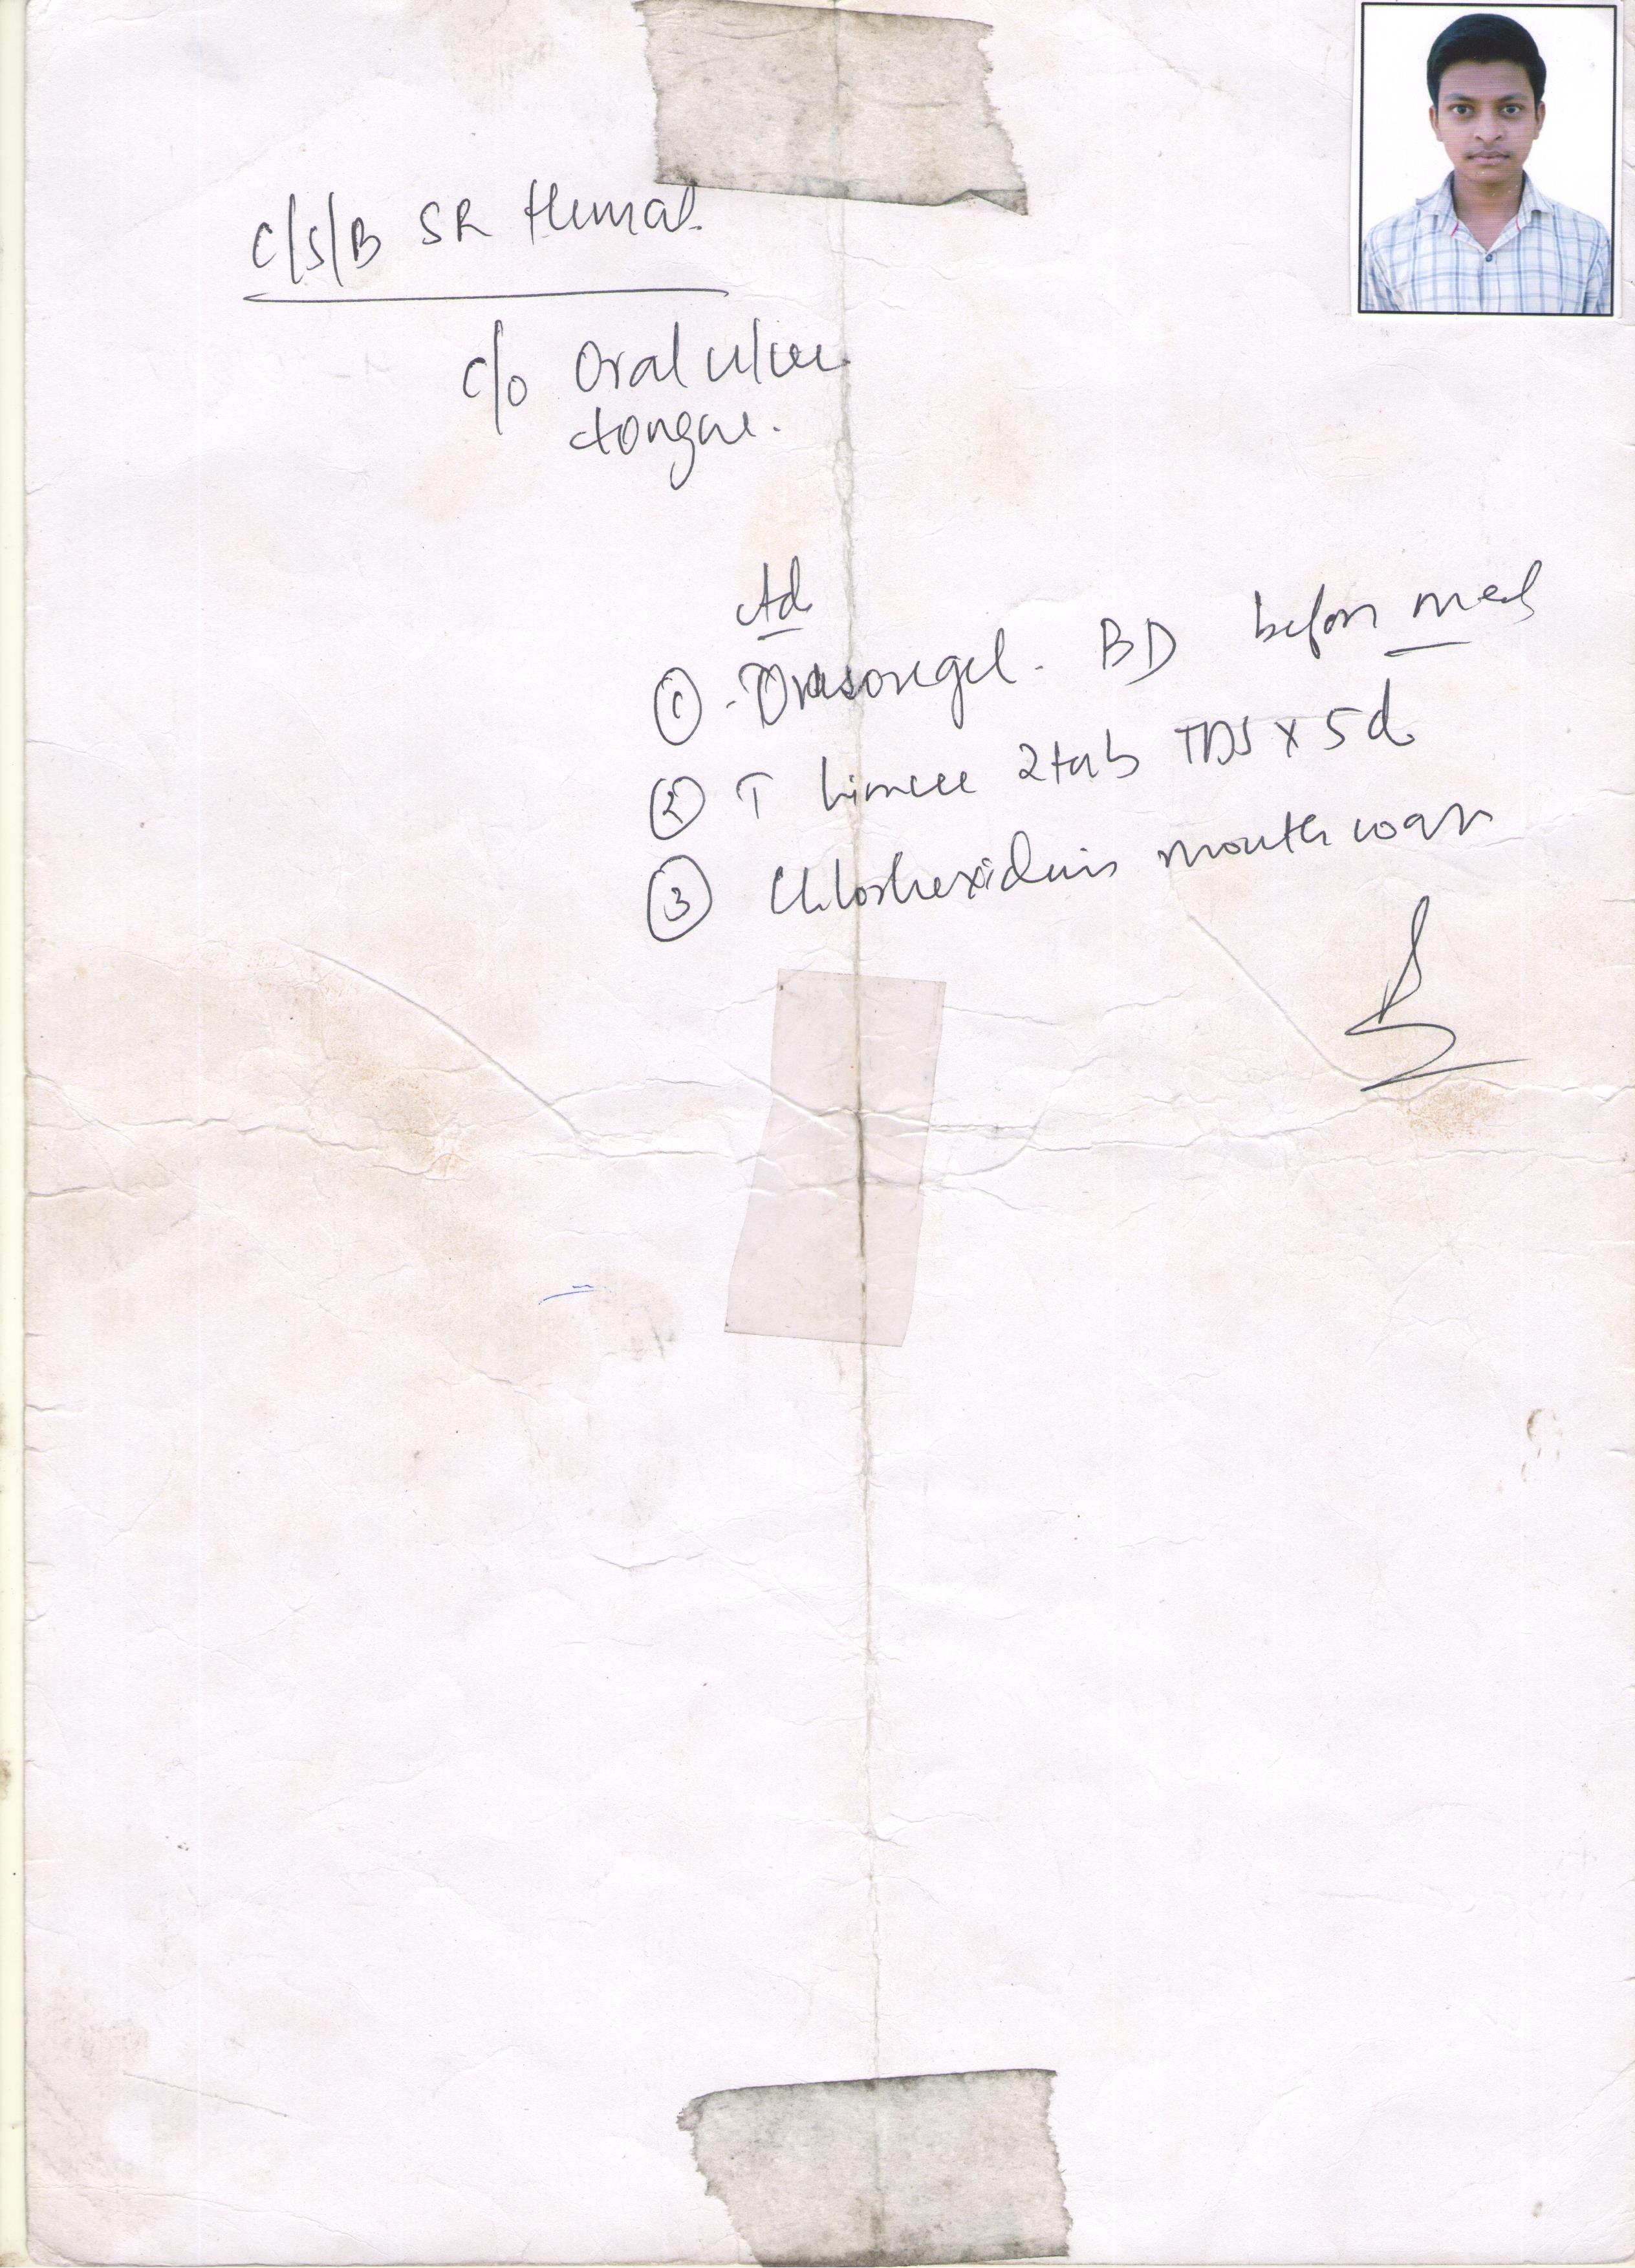 C/S/B SR Hemal.
c/o Oral ulcer
tongue.
Ad
① Orasoregel. BD before meals
② T 2tab TDS x 5d
③ Chlorhexidine mouth wash